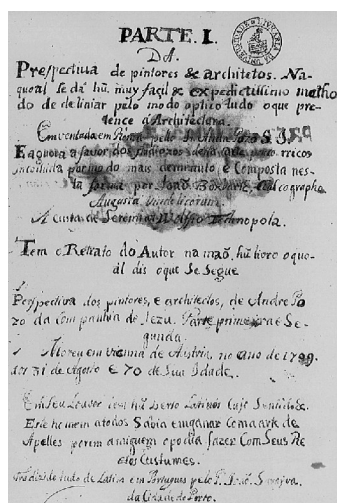 PARTE. I.
DA.
Prespectiva de pintores & architetos. Na-
qual se da hũ muy façil & expedictissimo metho
do de deliniar pelo modo optico tudo o que pre-
tence a Architectura.
Emventada em Roma pello
E agora a favor dos
por modo mais e Composta nes-
ta forma por Calcographo
Augusta Vindelicorum.
A Custa de Jeremias Wolffio
Tem o Retrato do Autor na maõ hũ livro o qu-
al dis o que Se Segue
Perspectiva dos pintores, e architectos, de Andre Po
zo da Companhia de Jezu. Parte primeira e Se-
gunda.
Morey em Vienna de Austria no ano de 1709.
aos 31 de Agosto e 70 de Sua Idade.
Em Seu Louvor tem hũ Verso Latino Cujo Sentido he.
Este homem a todos Sabia emganar Com a arte de
Apelles porem a ninguem o podia fazer Com Seus Re
ctos Custumes.
Tradizido tudo de Latim em Portugues pelo P. Joaõ Saraiva
da Cidade do Porto.